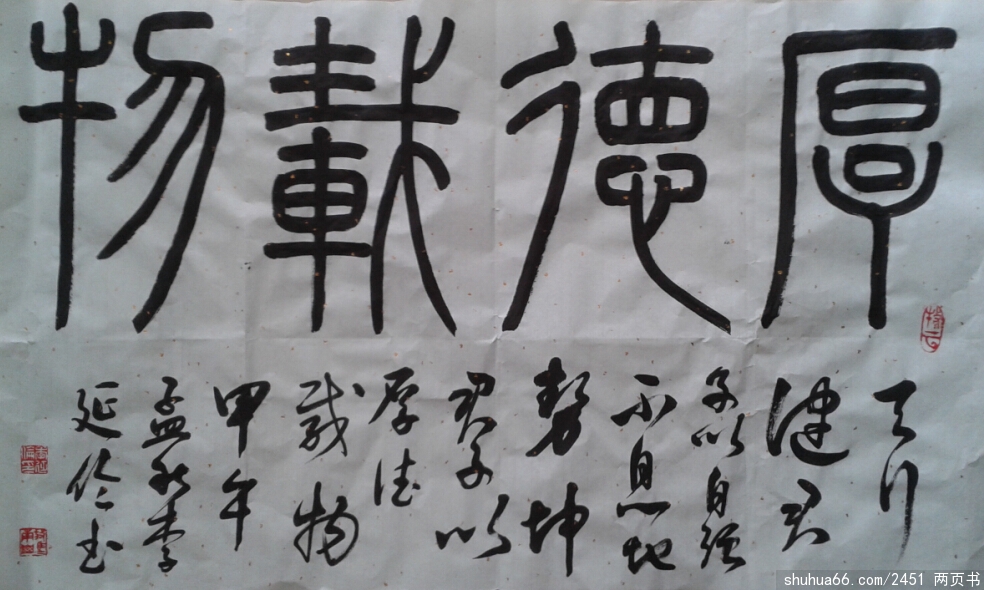 厚德載物
天行
健君
子以自强
不息地
势坤
君子以
厚德
载物
甲午
孟秋李
延书
shuhua66.com/2451 两页书